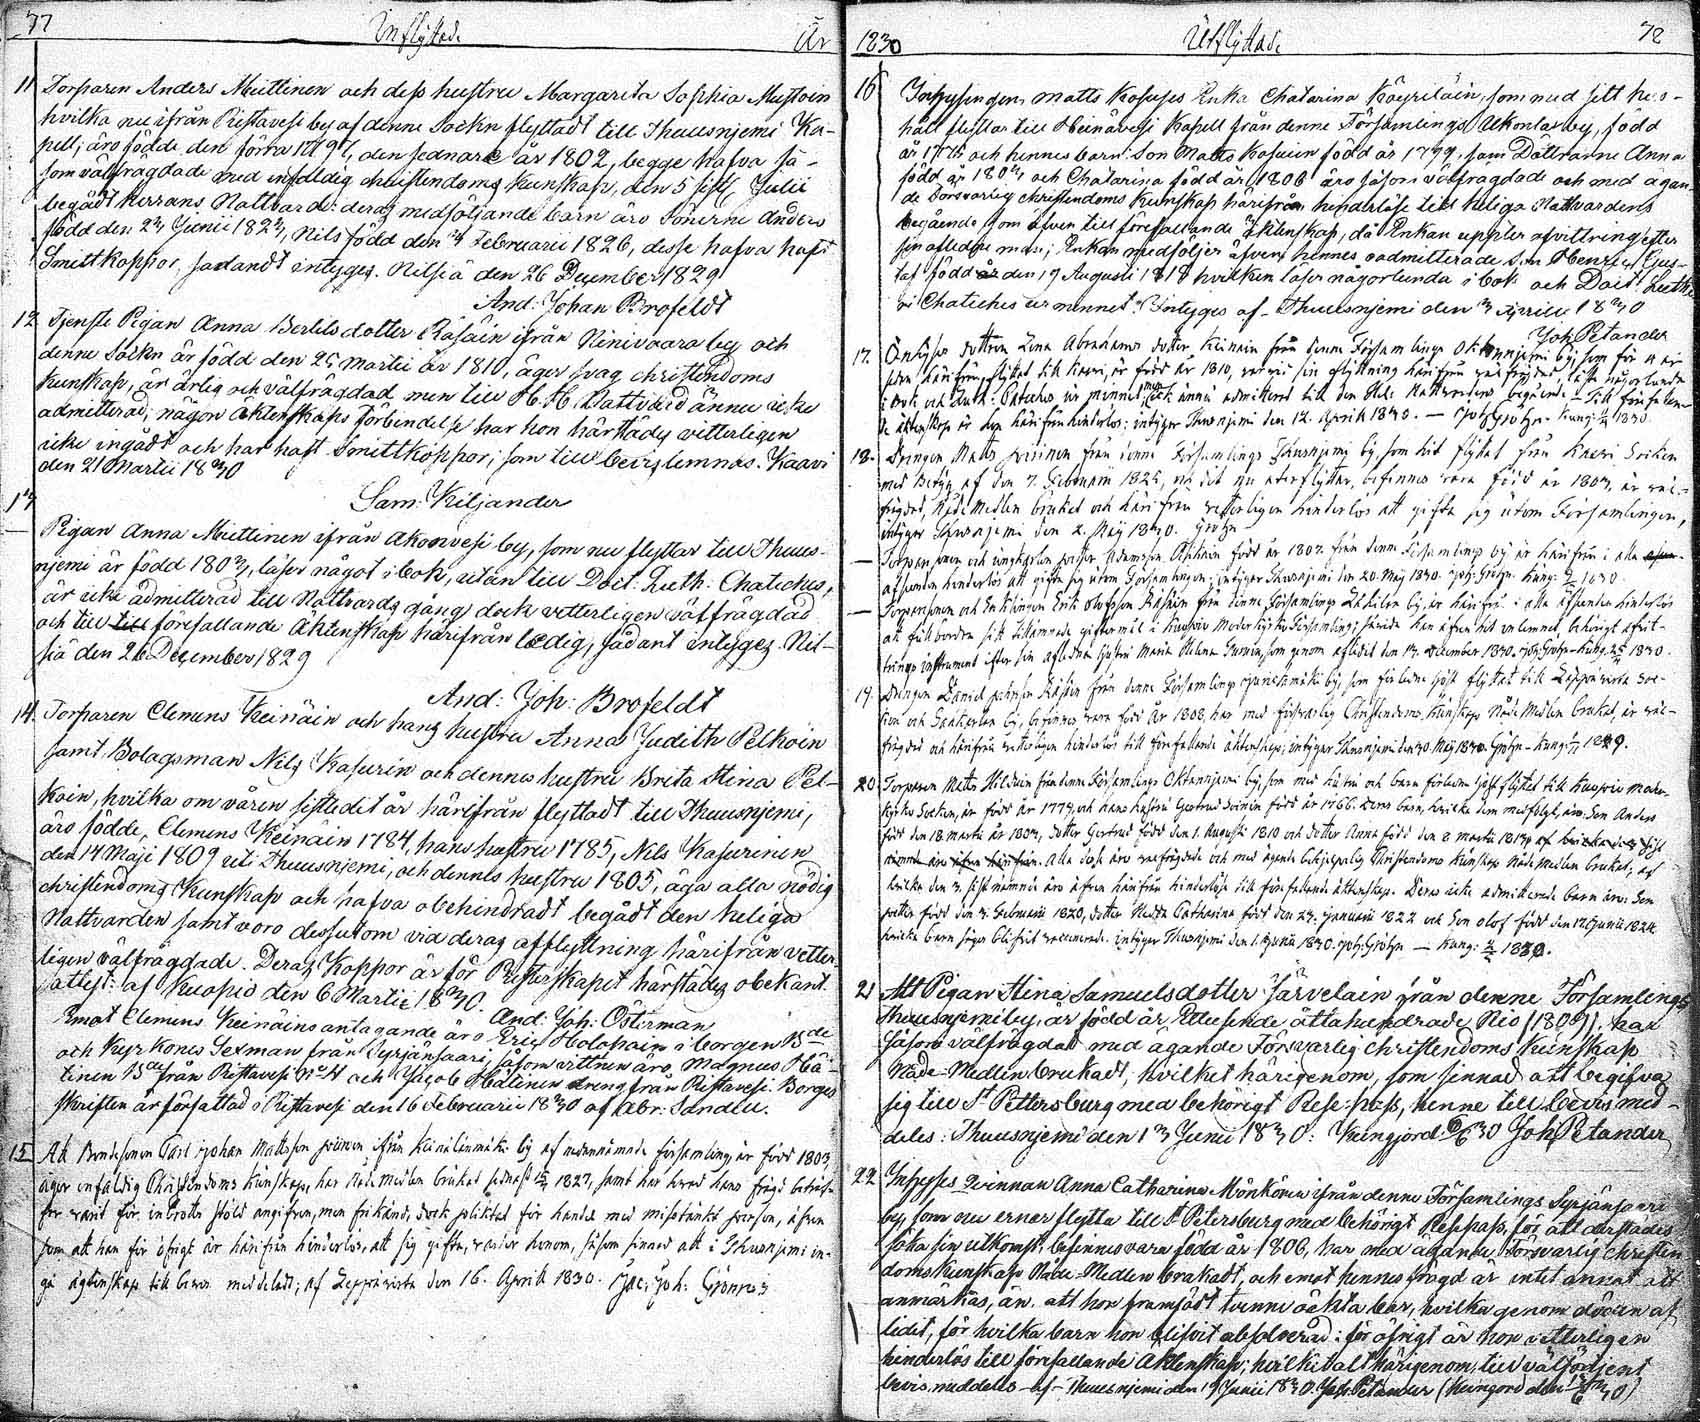 77 Inflyttade År
11 Torparen Anders Miettinen och dess hustru Margareta Sophia Mustoin
hvilka nu ifrån Ristavesi by af denne Sockn flyttadt till Thuusnjemi Ka-
pell, äro födde den förra 1797, den sednare år 1802, begge hafva så-
som välfrägdade med enfaldig christendoms kunskap, den 5 sistl. Julii
begådt Herrans Nattvard: deras medföljande barn äro Sönerne Anders
född den 23 Junii 1823, Nils född den 24 Februarii 1826, desse hafva haft
Smittkoppor, sådandt intyges. Nilsiä den 26 December 1829
And: Johan Brofeldt
12 Tjenste Pigan Anna Bertils dotter Räsäin ifrån Niinivaara by och
denne Sockn är född den 25 Martii år 1810, äger svag christendoms
kunskap, är ärlig och välfrägdad men till H. H. Nattvard ännu icke
admitterad, någon äktenskaps förbindelse har hon härstädes vitterligen
icke ingådt och har haft Smittkoppor; som till bevis lemnas. Kaavi
den 21 Martii 1830
Sam: Kiljander
13
Pigan Anna Miettinen ifrån Akonvesi by, som nu flyttar till Thuus-
njemi är född 1803, läser något i bok, utan till Doct: Luth: Chateches,
är icke admitterad till Nattvards gång dock vetterligen välfrägdad
och till till förefallande Äktenskap härifrån ledig, sådant intyges. Nil-
siä den 26 December 1829
And: Joh: Brofeldt
14. Torparen Clemens Keinäin och hans hustru Anna Judith Pelkoin
samt Bolagsman Nils Kasurin och dennes hustru Brita Stina Pel-
koin, hvilka om våren sistledit år härifrån flyttadt till Thuusnjemi,
äro födde, Clemens Keinäin 1784, hans hustru 1785, Nils Kasurinen
den 14 Maji 1809 uti Thuusnjemi, och dennes hustru 1805, äga alla nödig
christendoms kunskap och hafva obehindradt begådt den heliga
Nattvarden samt voro dessutom vid deras afflyttning härifrån vetter-
ligen välfrägdade. Deras Koppor är för Presterskapet härstädes obekant.
attest: af Kuopio den 6 Martii 1830. And: Joh: Österman
Emot Clemens Keinäins antagande äro Eric Holopain i borgen 15de
och Kyrkones Sexman från Syrjänsaari, såsom vittnen äro Magnus Hä-
tinen 15de från Ristavesi No 4 och Jacob Hätinen dreng från Ristavesi. Borges
skriften är författad i Ristavesi den 16 Februarii 1830 af Abr: Sandlu.
15 At Bondesonen Carl Johan Mattsson från Keinälänmäki by af nedannämnde församling är född 1803,
äger enfaldig Christendoms kunskap, har Nådemedlen brukat sednast 1827, samt hvad hans frägd beträf-
far varit för inbrotts stöld angifven, men frikänd, dock pliktad för handel med misstänkt person, äfven
som att han för öfrigt är härifrån hinderlös, att sig gifta, varder honom, såsom sinnad att i Thusnjemi in-
gå äktenskap till bevis meddeladt; af Leppävirta den 16. April 1830. Jac: Joh: Grönroos
1830 Utflyttade 78
16 Inhysingen Matts Kosuses Enka Chatarina Käyriläin, som med sitt hus-
håll flyttar till Heinävesi Kapell från denne Församlings Ukonlax by, född
år 1775 och hennes barn: Son Matts Kosuien född år 1799, sam Döttrarne Anna
född år 1803, och Chatarina född år 1806 äro såsom välfrägdade och med ägan-
de Försvarlig christendoms kunskap härifrån hinderlöse till heliga Nattvardens
begående som äfven till förefallande äktenskap, då Enkan uppter afvittring efter
sin aflidne man; Enkan medföljer äfven hennes oadmitterade Son Henric Gus-
taf född år den 19 Augusti 1818 hvilken läser någorlunda i bok och Doct: Luth:
Chateches ur minnet. Intyges af Thuusnjemi den 3 Aprill 1830
Joh Petander
17. Inhyses dottren Lena Abrahams dotter Keinäin från denne Församlings Oktannjemi by, som för 4 år
sedan härifrån flyttat till Kaavi, är född år 1810, var vid sin flyttning härifrån välfrägdad, läste någorlunda
i bok och Luth: Cateches ur minnet men ännu admitterad till den Hel: Nattvardens begående. Till förefallan-
de äktenskap är hon härifrån hinderlös: intyger Thusnjemi den 12. April 1830. — Joh Gröhn. Kung: 1830
18. Drengen Matts från denne Församlings Thusnjemi by, som hit flyttat från Kaavi Socken
med Betyg af den 7. Februarii 1825, och dit nu återflyttar, befinnes vara född år 1803, är väl-
frägdad, Nåde Medlen brukat och härifrån vetterligen hinderlös att gifta sig utom Församlingen,
intyger Thusnjemi den 2. Maj 1830. Gröhn
— och ungkarlen Petter Adamsson Räsäinen född år 1807 från denne Församlings by är härifrån i alla
afseenden hinderlös att gifta sig utom Församlingen; intyger Thusnjemi den 20. Maj 1830. Joh: Gröhn. Kung: 1830.
— Torparsonen och Enklingen Erik Olofsson Räsäin från denne Församlings by, är härifrån i alla afseenden hinderlös
att fullborda sitt tillämnade giftermål i Kuopio Moderkyrko Församling; härvid han äfven hit inlemnat behörigt afvit-
trings instrument efter sin aflidna hustru Maria Helena, som genom aflidit den 13. December 1830. Joh: Gröhn. Kung. 1830.
19. Drengen Daniel Räsäin från denne Församlings by, som förledne höst flyttat till Leppävirta Soc-
ken och Saahkarlax by, befinnes vara född år 1808, har med försvarlig Christendoms Kunskap Nåde Medlen brukat, är väl-
frägdad och härifrån vetterligen hinderlös till förefallande äktenskap; intyger Thusnjemi den 30. Maj 1830. Gröhn. Kung: 1829.
20. Torparen Matts Hilduin från denne Församlings Oktannjemi by, som med hustru och barn förledne höst flyttat till Kuopio moder-
kyrko Socken, är född år 1779, och hans hustru Gertrud Soinin född år 1766. Deras barn, hvilka dem medfölgt, äro: Son Anders
född den 18. Martii år 1807, Dotter Gertrud född den 1. Augusti 1810 och Dotter Anna född den 8 Martii 1813, af hvilka
Alla desse äro välfrägdade och med ägande behjelpelig Christendoms Kunskap Nåde Medlen brukat; af
hvilka den 3. sist nämnde äro äfven härifrån hinderlöse till förefallande äktenskap. Deras icke admitterade barn äro: Son
Petter född den 3. Februarii 1820, Dotter Hedda Catharina född den 23. Januarii 1822 och Son Olof född den 12. Junii 1824.
hvilka barn säges blifvit vaccinerade. intyger Thusnjemi den 1. Junii 1830. Joh: Gröhn. — Kung: 1830.
21 Att Pigan Stina Samuelsdotter Järveläin från denne Församlings
Thuusnjemi by, är född år Ettusende åttahundrade Nio (1809), har
såsom välfrägdad med ägande Försvarlig christendoms kunskap
Nåde-Medlen brukadt, hvilket härigenom, som sinnad att begifva
sig till St Pettersburg med behörigt Rese-pass, henne till bevis med-
deles: Thuusnjemi den 13 Junii 1830: Kungjord 6/6 30 Joh Petander
22 Inhyses Qvinnan Anna Catharina Mönkönen ifrån denne Församlings Syrjänsaari
by, som nu ernar flytta till St Petersburg med behörigt Respass, för att derstädes
söka sin utkomst, befinnes vara född år 1806, har med ägande Försvarlig christen-
doms kunskap Nåde-Medlen brukadt, och emot hennes frägd är intet annat att
anmärkas, än att hon framfödt tvenne oäkta barn, hvilka genom döden af-
lidit, för hvilka barn hon blifvit absolverad: för öfrigt är hon vetterligen
hinderlös till förefallande Äktenskap; hvilket alt härigenom, till välförtjent
bevis meddeles af Thuusnjemi den 19 Junii 1830. Joh. Petander (Kungord den 13/6 30)